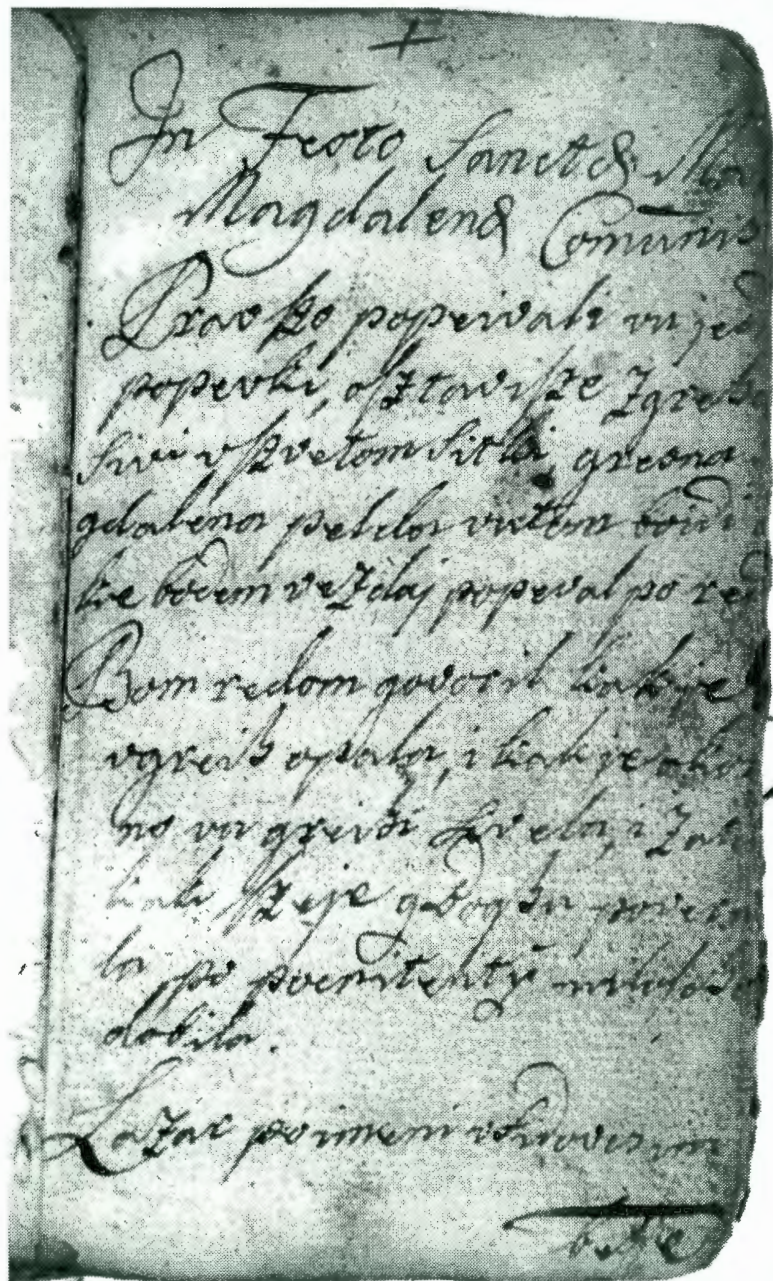 +
In Festo Sanctæ Ma
Magdalenæ Comunis
Pravſzo popeivali vu jed
popevki, oſztaviſze Zgreh
ſivi vſzvetom ſitki, greona
gdalena pelda vutom boidi
kie bodem veZdaj popeval po red
Bom redom govoril kak je
vgreih opala, i kak je
no vu greihi ſivela, i Zat
kak ſzeje gbogu povern
la, po poenitentÿ miloſo
dobila.
LaZar po imeni